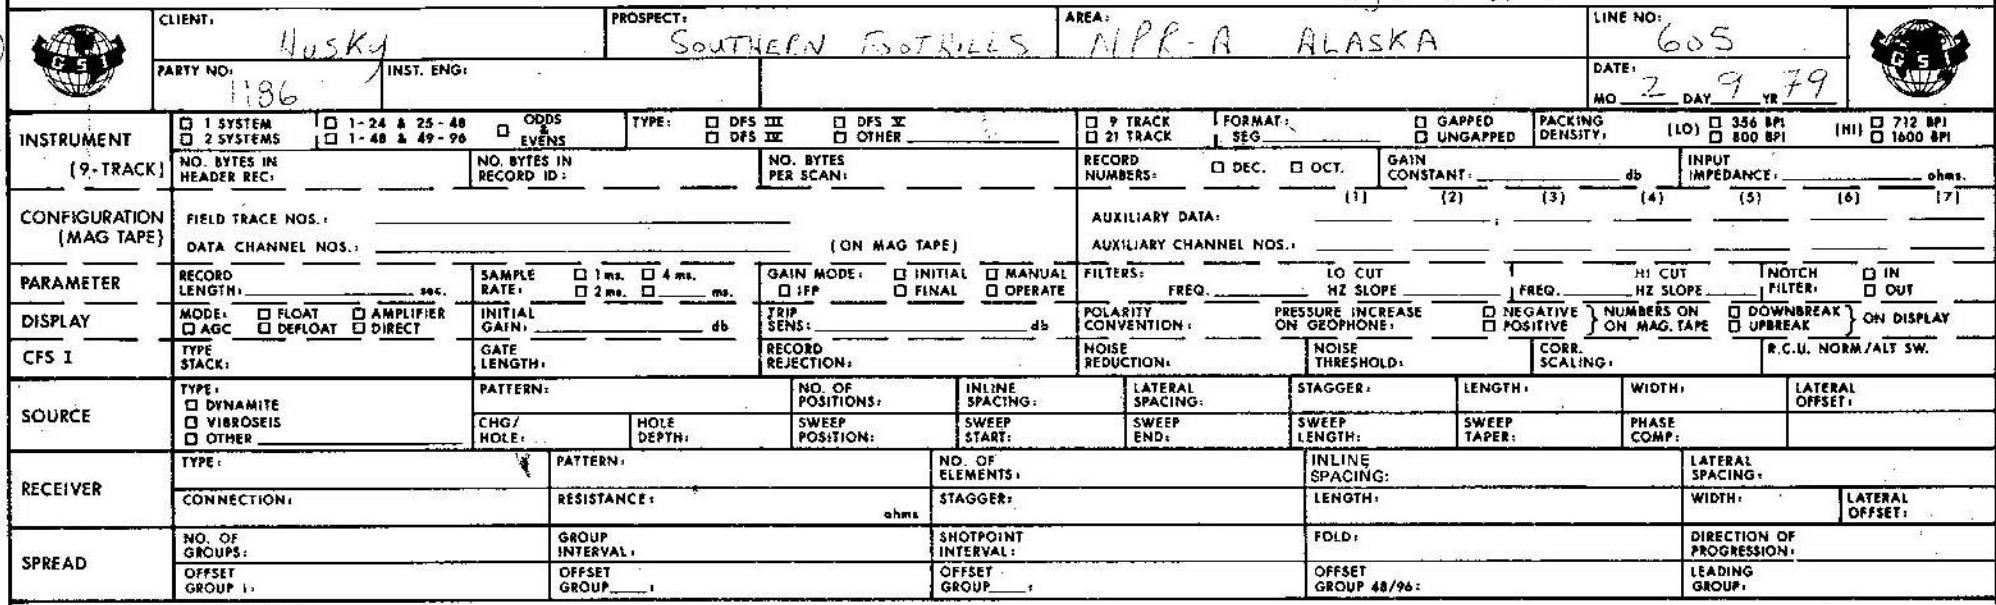 CLIENT: Husky PROSPECT: SOUTHERN FOOTHILLS AREA: NPR-A ALASKA LINE NO: 605
GSI GSI
PARTY NO: 1186 INST. ENG: DATE: MO 2 DAY 9 YR 79
INSTRUMENT (9-TRACK)
☐ 1 SYSTEM ☐ 1-24 & 25-48 ☐ ODDS & EVENS TYPE: ☐ DFS III ☐ DFS V ☐ 9 TRACK FORMAT: ☐ GAPPED PACKING DENSITY: (LO) ☐ 356 BPI (HI) ☐ 712 BPI
☐ 2 SYSTEMS ☐ 1-48 & 49-96 ☐ DFS IV ☐ OTHER ☐ 21 TRACK SEG ☐ UNGAPPED ☐ 800 BPI ☐ 1600 BPI
NO. BYTES IN HEADER REC: NO. BYTES IN RECORD ID: NO. BYTES PER SCAN: RECORD NUMBERS: ☐ DEC. ☐ OCT. GAIN CONSTANT: db INPUT IMPEDANCE: ohms.
CONFIGURATION (MAG TAPE)
(1) (2) (3) (4) (5) (6) (7)
FIELD TRACE NOS.: AUXILIARY DATA:
DATA CHANNEL NOS.: (ON MAG TAPE) AUXILIARY CHANNEL NOS.:
PARAMETER
RECORD LENGTH: sec. SAMPLE RATE: ☐ 1 ms. ☐ 4 ms. ☐ 2 ms. ☐ ms. GAIN MODE: ☐ INITIAL ☐ MANUAL ☐ IFP ☐ FINAL ☐ OPERATE FILTERS: LO CUT FREQ. HZ SLOPE HI CUT FREQ. HZ SLOPE NOTCH FILTER: ☐ IN ☐ OUT
DISPLAY
MODE: ☐ FLOAT ☐ AMPLIFIER ☐ AGC ☐ DEFLOAT ☐ DIRECT INITIAL GAIN: db TRIP SENS: db POLARITY CONVENTION: PRESSURE INCREASE ON GEOPHONE: ☐ NEGATIVE ☐ POSITIVE } NUMBERS ON MAG. TAPE ☐ DOWNBREAK ☐ UPBREAK } ON DISPLAY
CFS I
TYPE STACK: GATE LENGTH: RECORD REJECTION: NOISE REDUCTION: NOISE THRESHOLD: CORR. SCALING: R.C.U. NORM/ALT SW.
SOURCE
TYPE: ☐ DYNAMITE ☐ VIBROSEIS ☐ OTHER
PATTERN: NO. OF POSITIONS: INLINE SPACING: LATERAL SPACING: STAGGER: LENGTH: WIDTH: LATERAL OFFSET:
CHG/HOLE: HOLE DEPTH: SWEEP POSITION: SWEEP START: SWEEP END: SWEEP LENGTH: SWEEP TAPER: PHASE COMP:
RECEIVER
TYPE: PATTERN: NO. OF ELEMENTS: INLINE SPACING: LATERAL SPACING:
CONNECTION: RESISTANCE: ohms STAGGER: LENGTH: WIDTH: LATERAL OFFSET:
SPREAD
NO. OF GROUPS: GROUP INTERVAL: SHOTPOINT INTERVAL: FOLD: DIRECTION OF PROGRESSION:
OFFSET GROUP 1: OFFSET GROUP : OFFSET GROUP : OFFSET GROUP 48/96: LEADING GROUP: